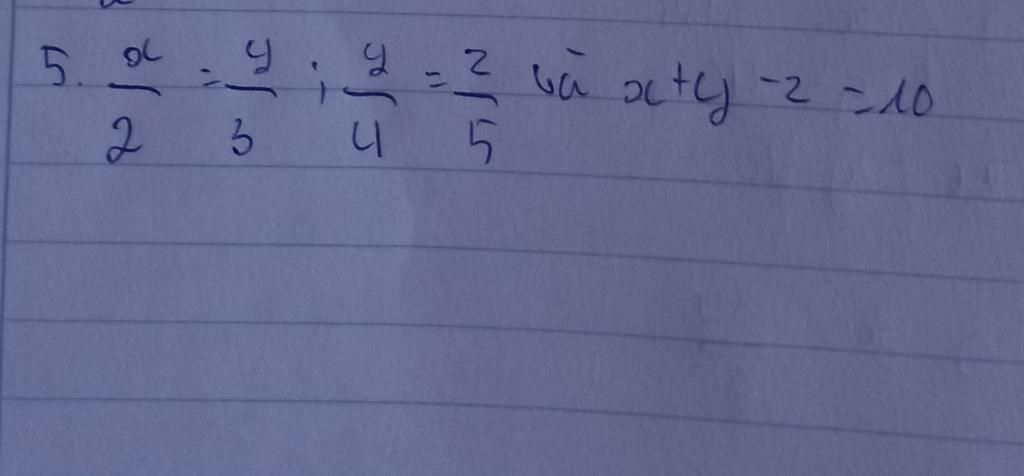 5. x/2 = y/3 ; y/4 = z/5 và x+y-z=10